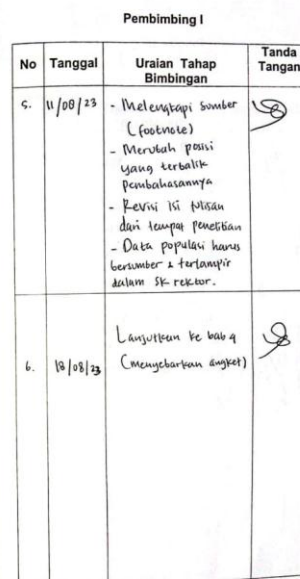 Pembimbing I
No Tanggal Uraian Tahap Bimbingan Tanda Tangan
5. 11/08/23 - Melengkapi sumber
(footnote)
- Merubah posisi
yang terbalik
pembahasannya
- Revisi isi tulisan
dari tempat penelitian
- Data populasi harus
bersumber & terlampir
dalam SK rektor.
6. 18/08/23 Lanjutkan ke bab 4
(menyebarkan angket)